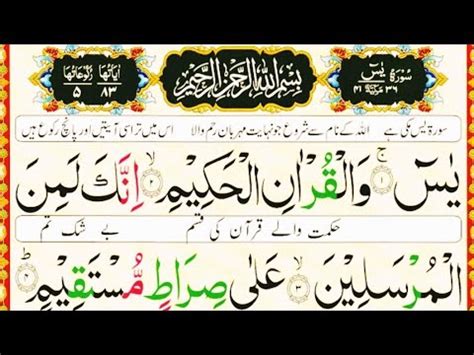 سورة يٰسٓ ٣٦ ٤١
بِسْمِ اللهِ الرَّحْمٰنِ الرَّحِيْمِ
اٰیَاتُهَا ٨٣ رُکُوْعَاتُهَا ٥
سورة یٰسٓ مکی ہے اللہ کے نام سے شروع جو نہایت مہربان رحم والا اس میں تراسی آیتیں اور پانچ رکوع ہیں
يٰسٓ ۚ ۱ وَالْقُرْاٰنِ الْحَكِيْمِ ۙ ۲ اِنَّكَ لَمِنَ
حکمت والے قرآن کی قسم بے شک تم
الْمُرْسَلِيْنَ ۙ ۳ عَلٰى صِرَاطٍ مُّسْتَقِيْمٍ ؕ ۴